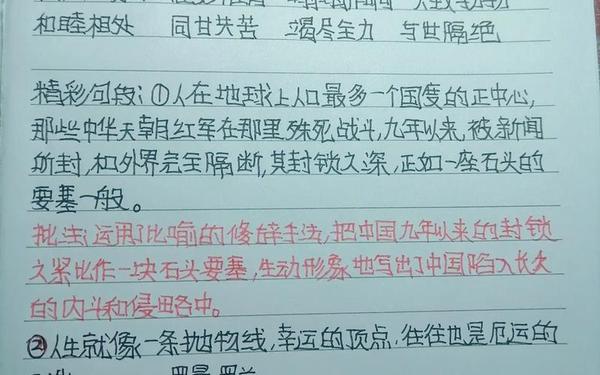 和睦相处 同甘共苦 竭尽全力 与世隔绝
精彩句段:①人在地球上人口最多一个国度的正中心,
那些中华天朝红军在那里殊死战斗,九年以来,被新闻
所封,和外界完全隔断,其封锁之深,正如一座石头的
要塞一般。
批注:运用了比喻的修辞手法,把中国九年以来的封锁
之紧比作一块石头要塞,生动形象地写出了中国陷入长久
的内斗和侵略中。
②人生就像一条抛物线,幸运的顶点,往往也是厄运的